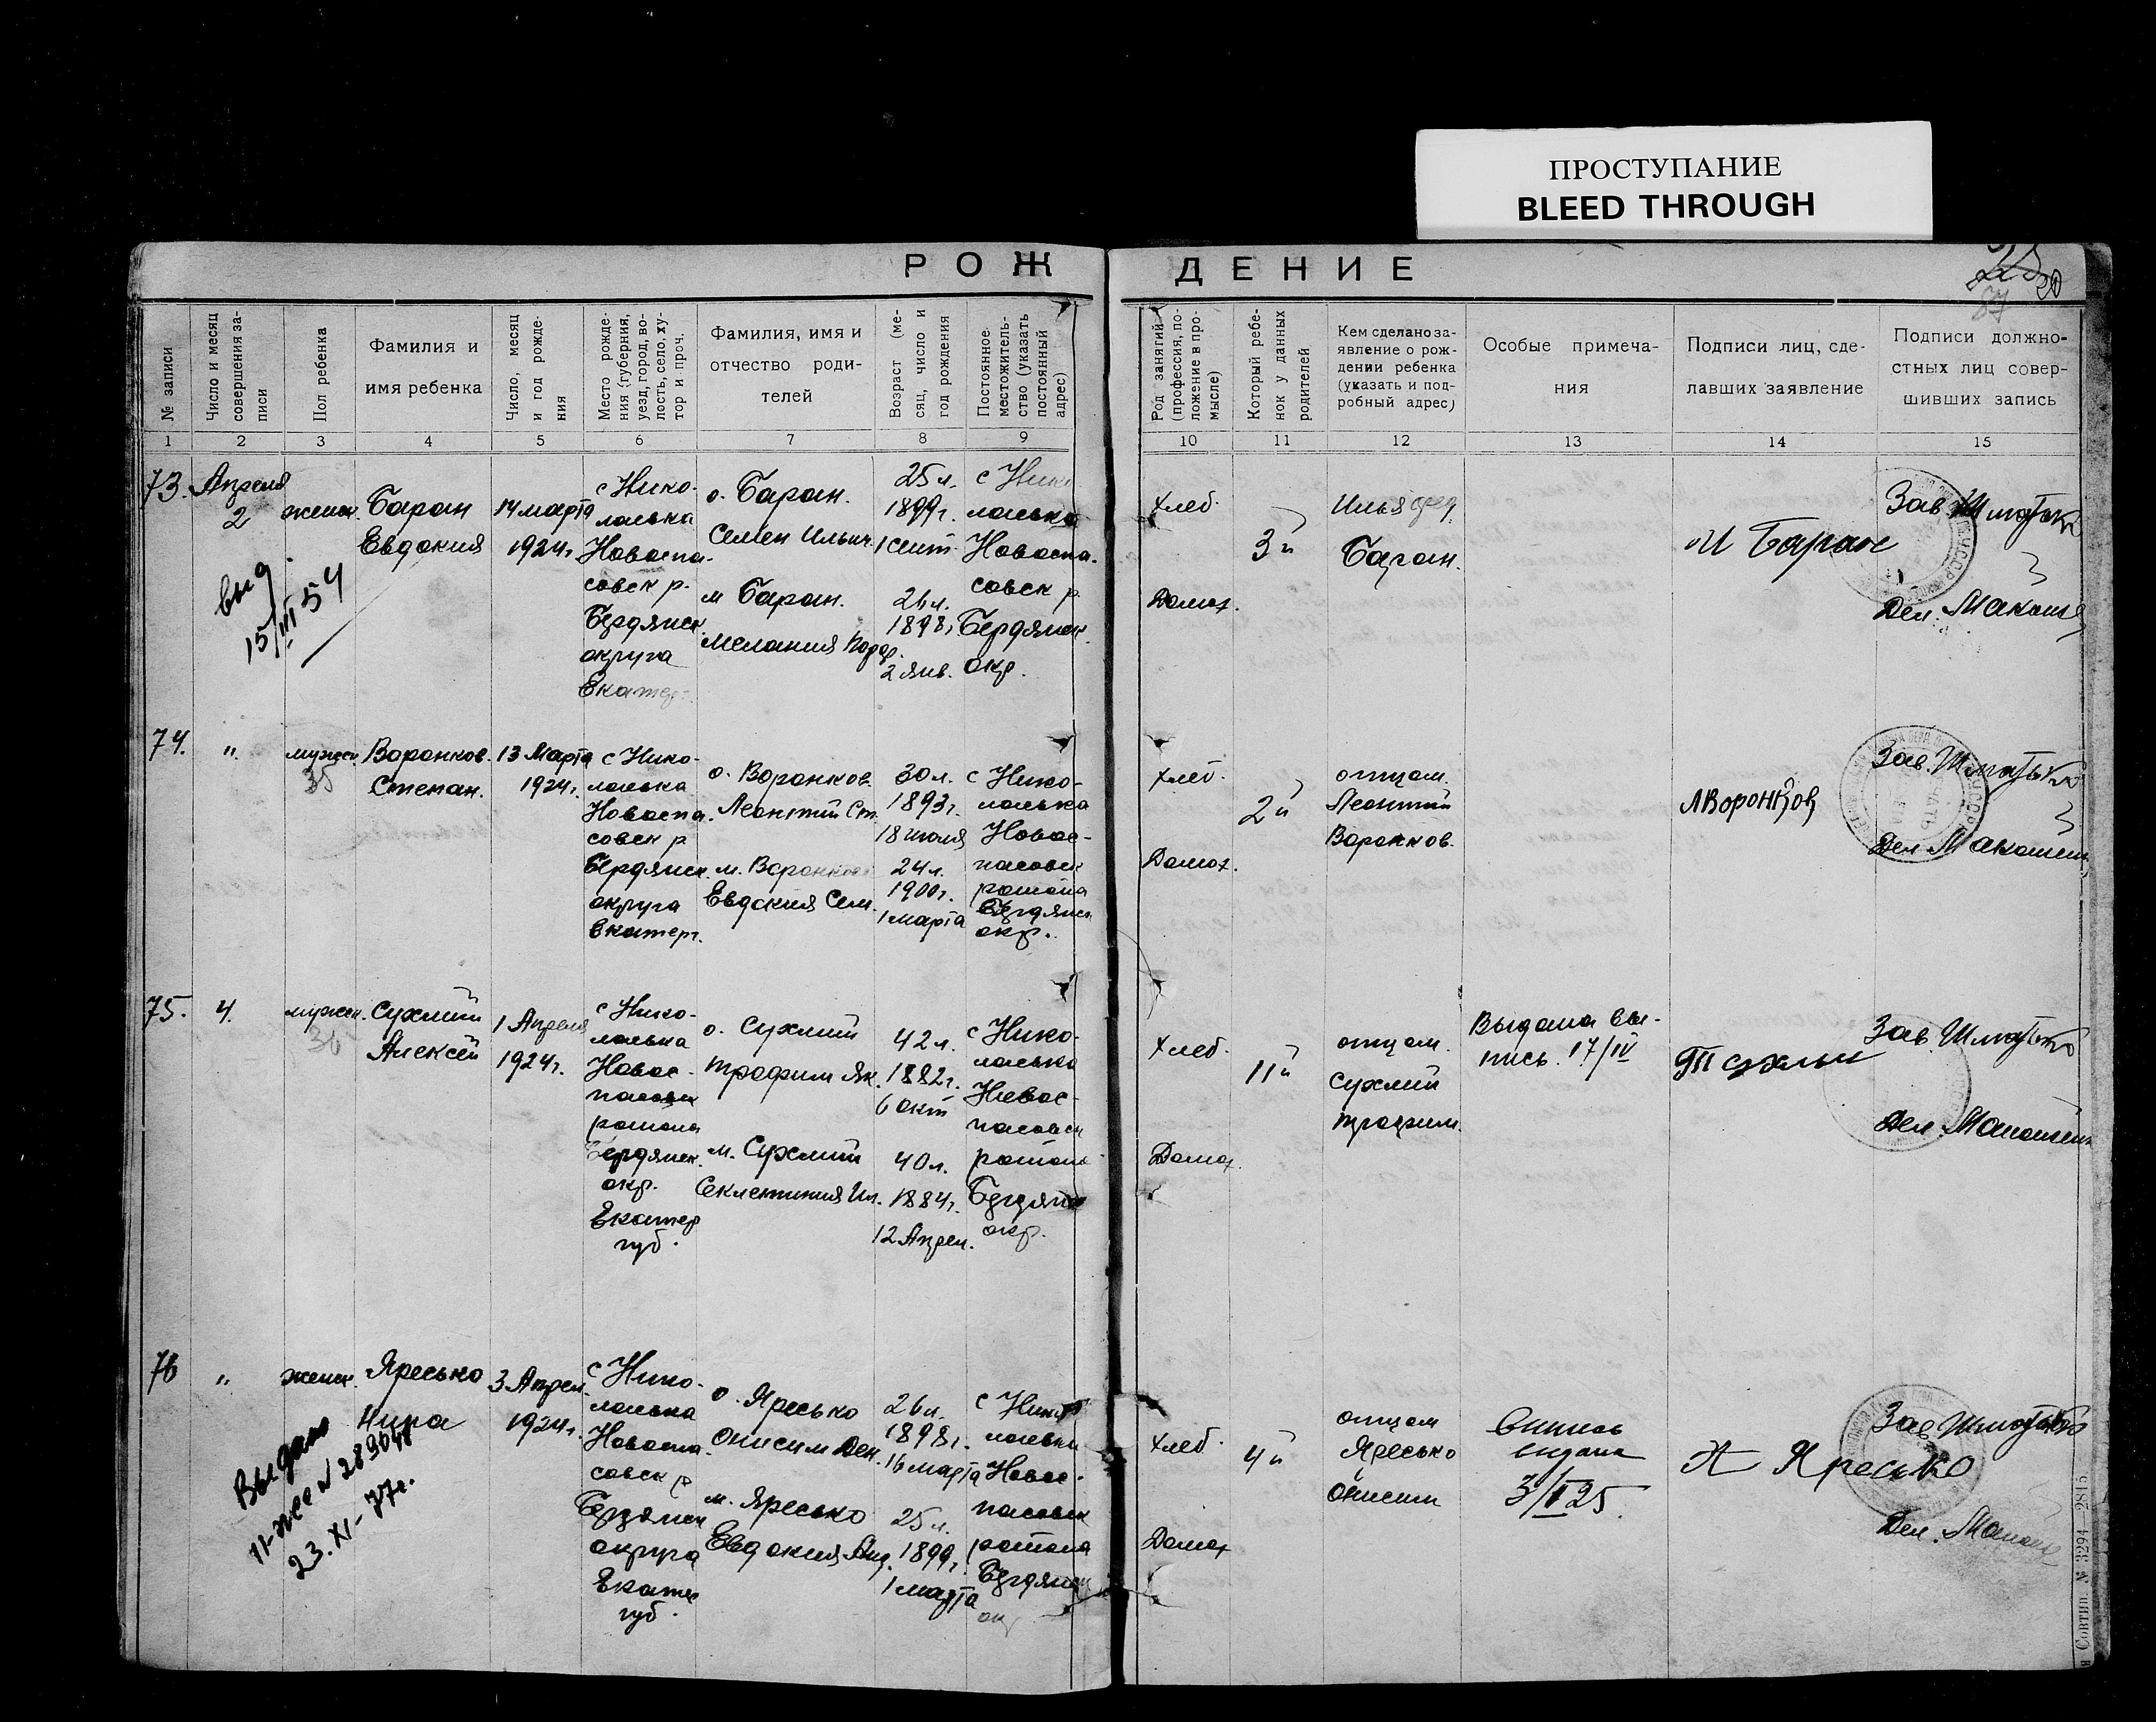 ПРОСТУПАНИЕ
BLEED THROUGH
РОЖДЕНИЕ
20
№ записи
Число и месяц совершения записи
Пол ребенка
Фамилия и
имя ребенка
Число, месяц и год рождения
Место рождения (губерния, уезд, город, волость, село, хутор и проч.
Фамилия, имя и
отчество роди-
телей
Возраст (месяц, число и год рождения
Постоянное местожительство (указать постоянный адрес)
Род занятий (профессия, положение в промысле)
Который ребенок у данных родителей
Кем сделано за-
явление о рож-
дении ребенка
(указать и под-
робный адрес)
Особые примеча-
ния
Подписи лиц, сде-
лавших заявление
Подписи должно-
стных лиц совер-
шивших запись
1 2 3 4 5 6 7 8 9 10 11 12 13 14 15
73.
Апреля
2
женск.
Баран
Евдокия
14 марта
1924 г.
с Нико-
лаевка
Новоспа-
совск р.
Бердянск.
округа
Екатер.
о. Баран.
Семен Ильич.
м Баран.
Мелания
25 л.
1899 г.
1 сент.
26 л.
1898 г.
2 янв.
с Нико
лаевка
Новоспа-
совск р
Бердянск.
окр.
хлеб.
Домох.
3й
Илья
Баран.
И Баран
Зав. Шматько
Дел.
выд.
15/III 54
74.
"
мужск.
Воронков.
Степан.
13 Марта
1924 г.
с Нико-
лаевка
Новоспа-
совск р
Бердянск.
округа
Екатер.
о. Воронков.
Леонтий Ст.
м. Воронкова
Евдокия Сем.
30 л.
1893 г.
18 июля
24 л.
1900 г.
1 марта
с Нико-
лаевка
Новос-
пасовск
района
Бердянск
окр.
хлеб.
Домох.
2й
отцом.
Леонтий
Воронков.
Л Воронков
Зав. Шматько
Дел.
75.
4.
мужск.
Сухмий
Алексей
1 Апреля
1924 г.
с Нико-
лаевка
Новос-
пасовск
района
Бердянск.
окр.
Екатер
губ.
о. Сухмий
Трофим Як.
м. Сухмий
42 л.
1882 г.
6 окт
40 л.
1884 г.
12 Апрел.
с Нико-
лаевка
Новос-
пасовск
района
Бердянск
окр.
Хлеб.
Домох.
11й
отцом.
Сухмий
Трофим.
Выдана вы-
пись. 17/IV
Зав. Шматько
Дел.
76
"
женск.
Яресько
Нина
3 Апрел.
1924 г.
с Нико-
лаевка
Новоспа-
совск р
Бердянск
округа
Екатер
губ.
о. Яресько
Онисим Дем.
м. Яресько
Евдокия Анд.
26 л.
1898 г.
16 марта
25 л.
1899 г.
1 марта
с Нико
лаевка
Новос-
пасовск
района
Бердянск
хлеб.
Домох
4й
отцом
Яресько
Онисим
Выпись
выдана
3/I 25.
Яресько
Зав Шматько
Дел.
Выдано
23.XI-77г.
Совтип. № 3294-2815